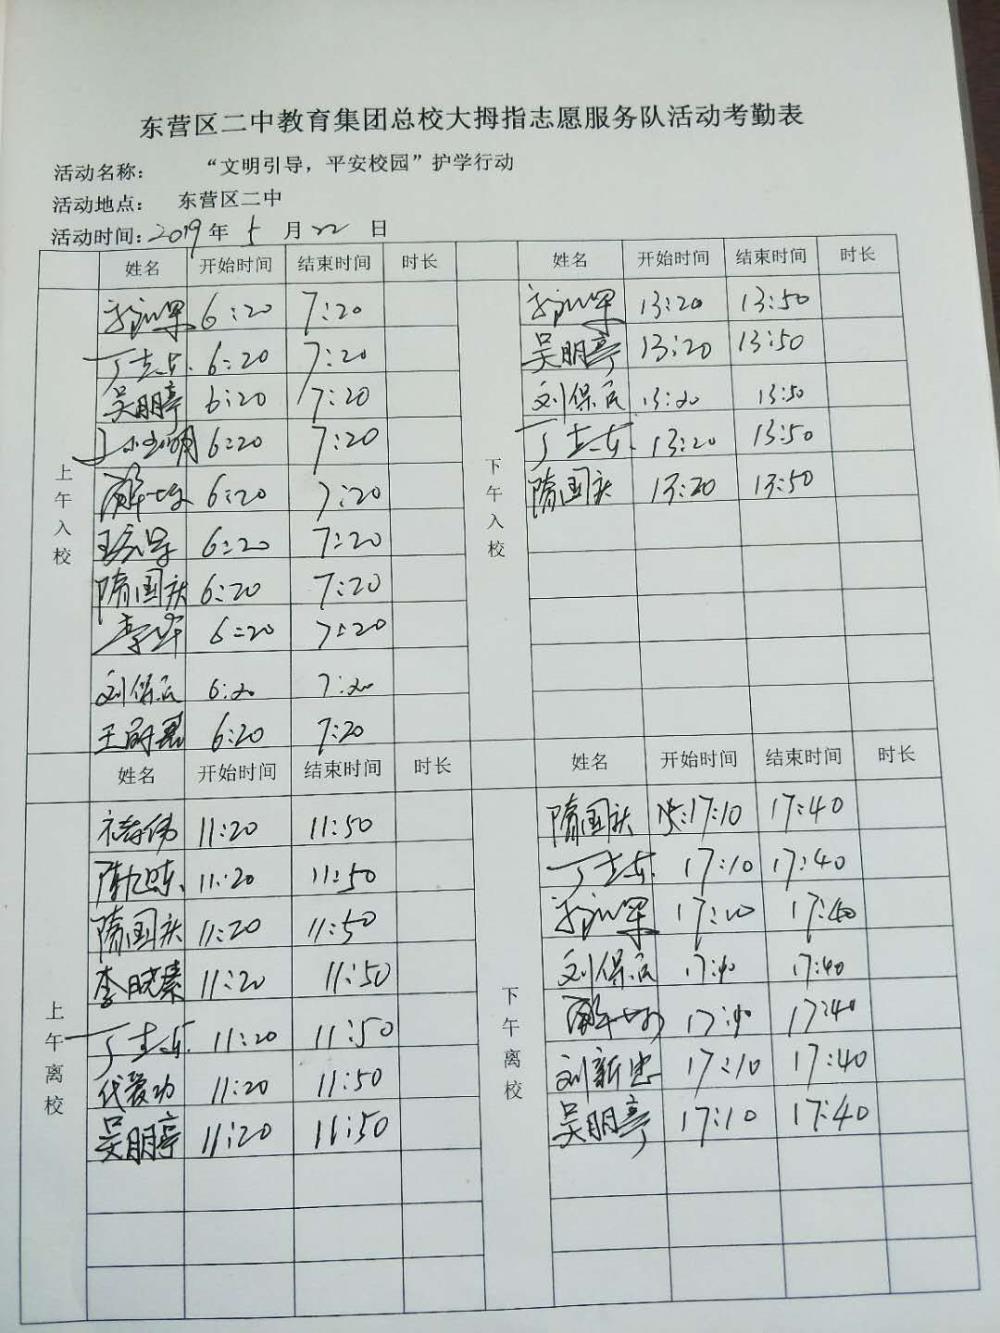 东营区二中教育集团总校大拇指志愿服务队活动考勤表
活动名称： “文明引导，平安校园”护学行动
活动地点： 东营区二中
活动时间：2019年5月22日
姓名 开始时间 结束时间 时长 姓名 开始时间 结束时间 时长
上午入校
6:20 7:20
6:20 7:20
吴明亭 6:20 7:20
6:20 7:20
6:20 7:20
6:20 7:20
隋国庆 6:20 7:20
李军 6:20 7:20
刘保民 6:20 7:20
6:20 7:20
下午入校
13:20 13:50
吴明亭 13:20 13:50
刘保民 13:20 13:50
13:20 13:50
隋国庆 13:20 13:50
姓名 开始时间 结束时间 时长 姓名 开始时间 结束时间 时长
上午离校
11:20 11:50
11:20 11:50
隋国庆 11:20 11:50
李晓素 11:20 11:50
11:20 11:50
代爱功 11:20 11:50
吴明亭 11:20 11:50
下午离校
隋国庆 17:10 17:40
17:10 17:40
17:10 17:40
刘保民 17:10 17:40
17:10 17:40
刘新忠 17:10 17:40
吴明亭 17:10 17:40